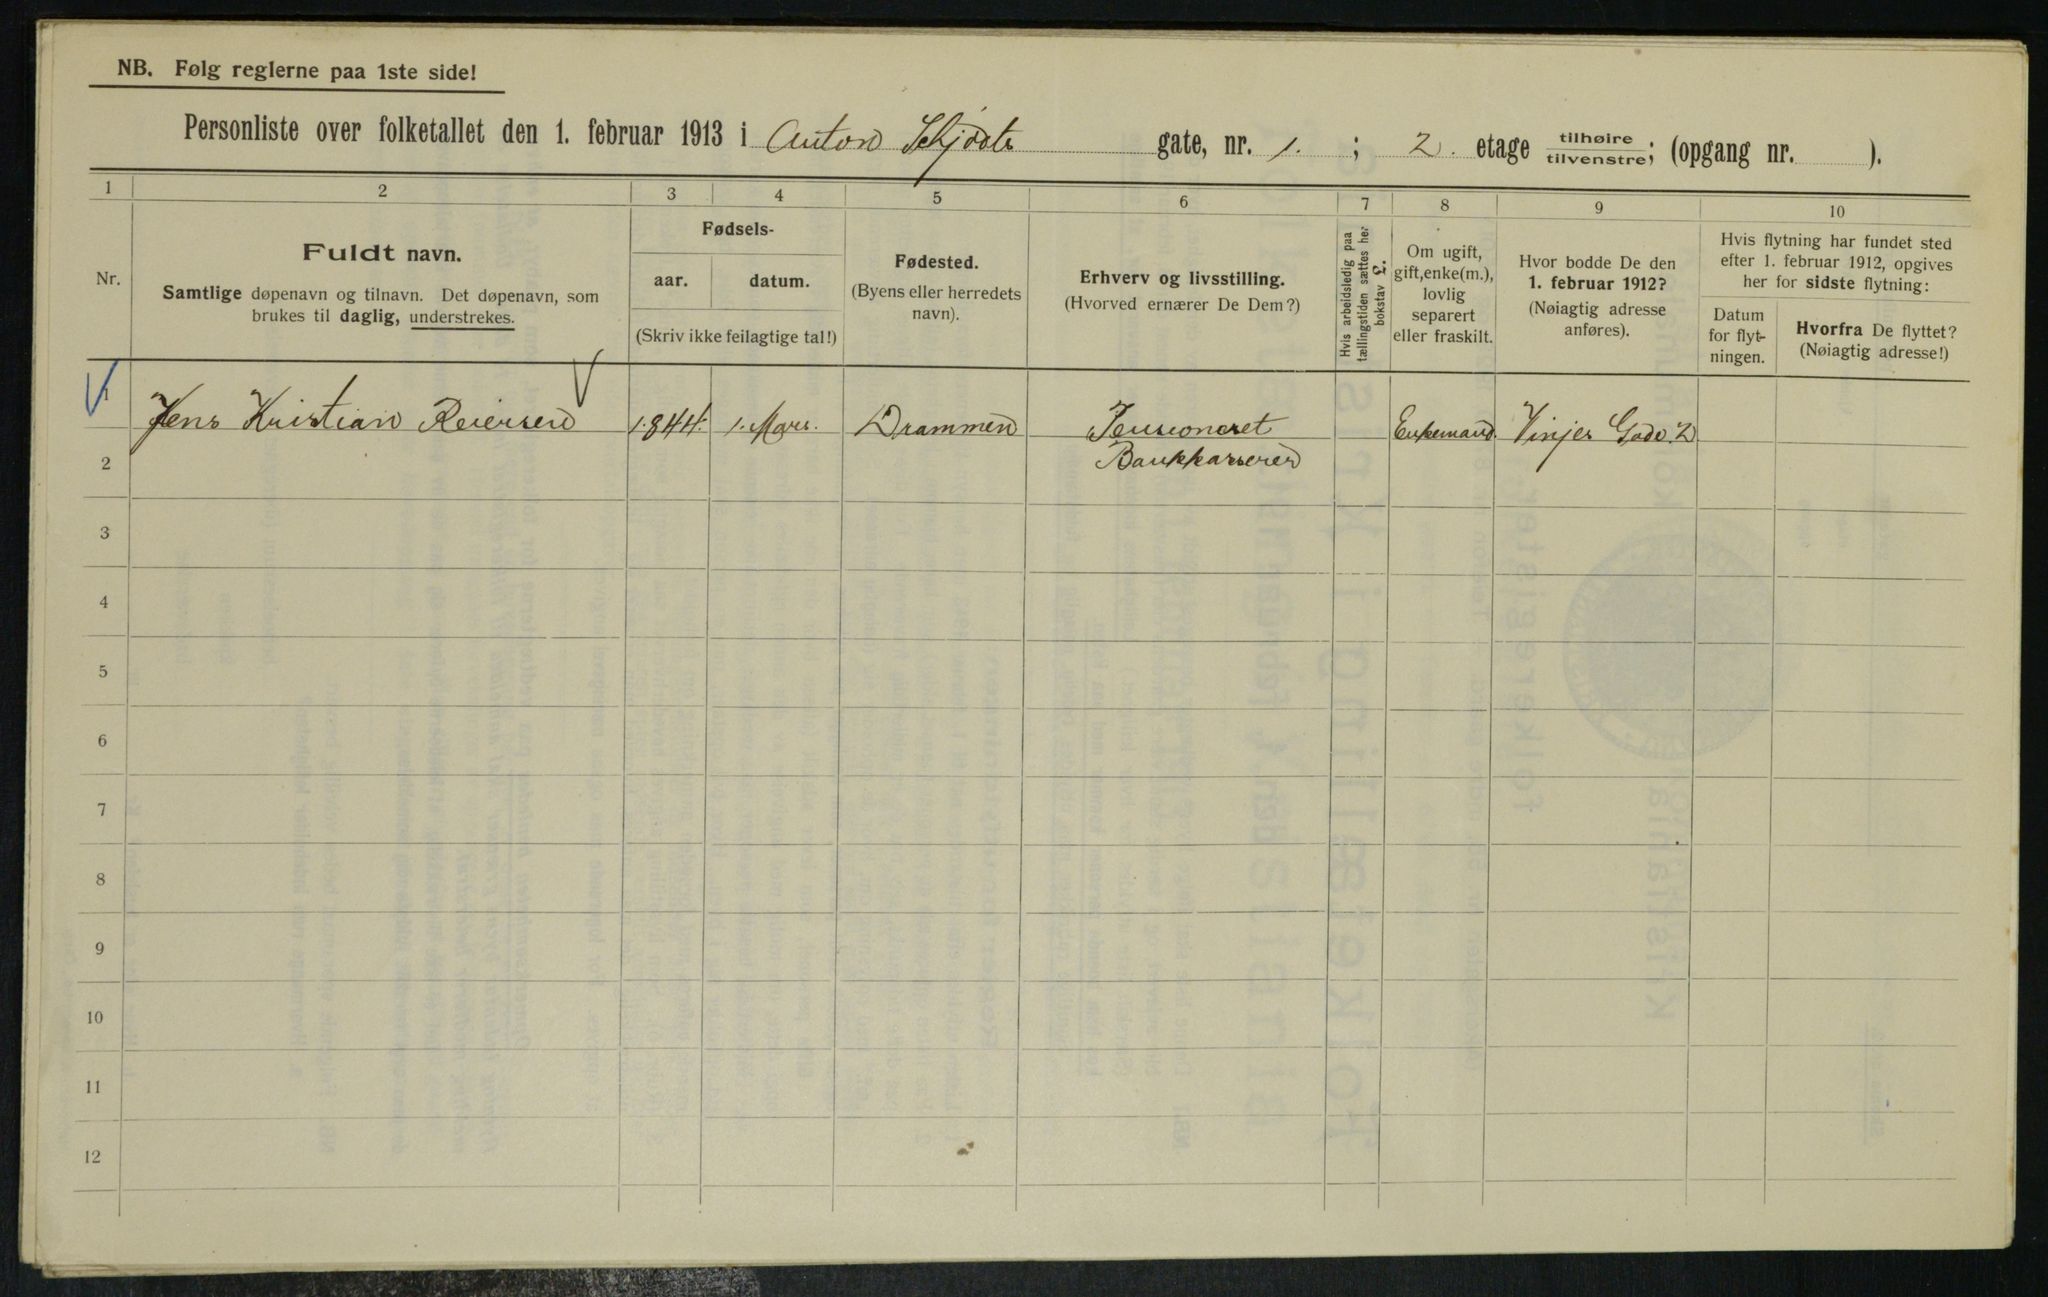 NB. Følg reglerne paa 1ste side!
Personliste over folketallet den 1. februar 1913 i Anton Schjødts gate, nr. 1. ; 2. etage tilhøire tilvenstre; (opgang nr. ).
1 2 3 4 5 6 7 8 9 10
Nr.
Fuldt navn.
Samtlige døpenavn og tilnavn. Det døpenavn, som
brukes til daglig, understrekes.
Fødsels-
aar. datum.
(Skriv ikke feilagtige tal!)
Fødested.
(Byens eller herredets
navn).
Erhverv og livsstilling.
(Hvorved ernærer De Dem?)
Hvis arbeidsledig paa
tællingstiden sættes her
bokstav L.
Om ugift,
gift, enke(m.),
lovlig
separert
eller fraskilt.
Hvor bodde De den
1. februar 1912?
(Nøiagtig adresse
anføres).
Hvis flytning har fundet sted
efter 1. februar 1912, opgives
her for sidste flytning:
Datum
for flyt-
ningen.
Hvorfra De flyttet?
(Nøiagtig adresse!)
1 Jens Kristian Reiersen 1844. 1. Mars. Drammen Pensioneret Enkemand. Vinjes Gade. 2
Bankkasserer
2
3
4
5
6
7
8
9
10
11
12